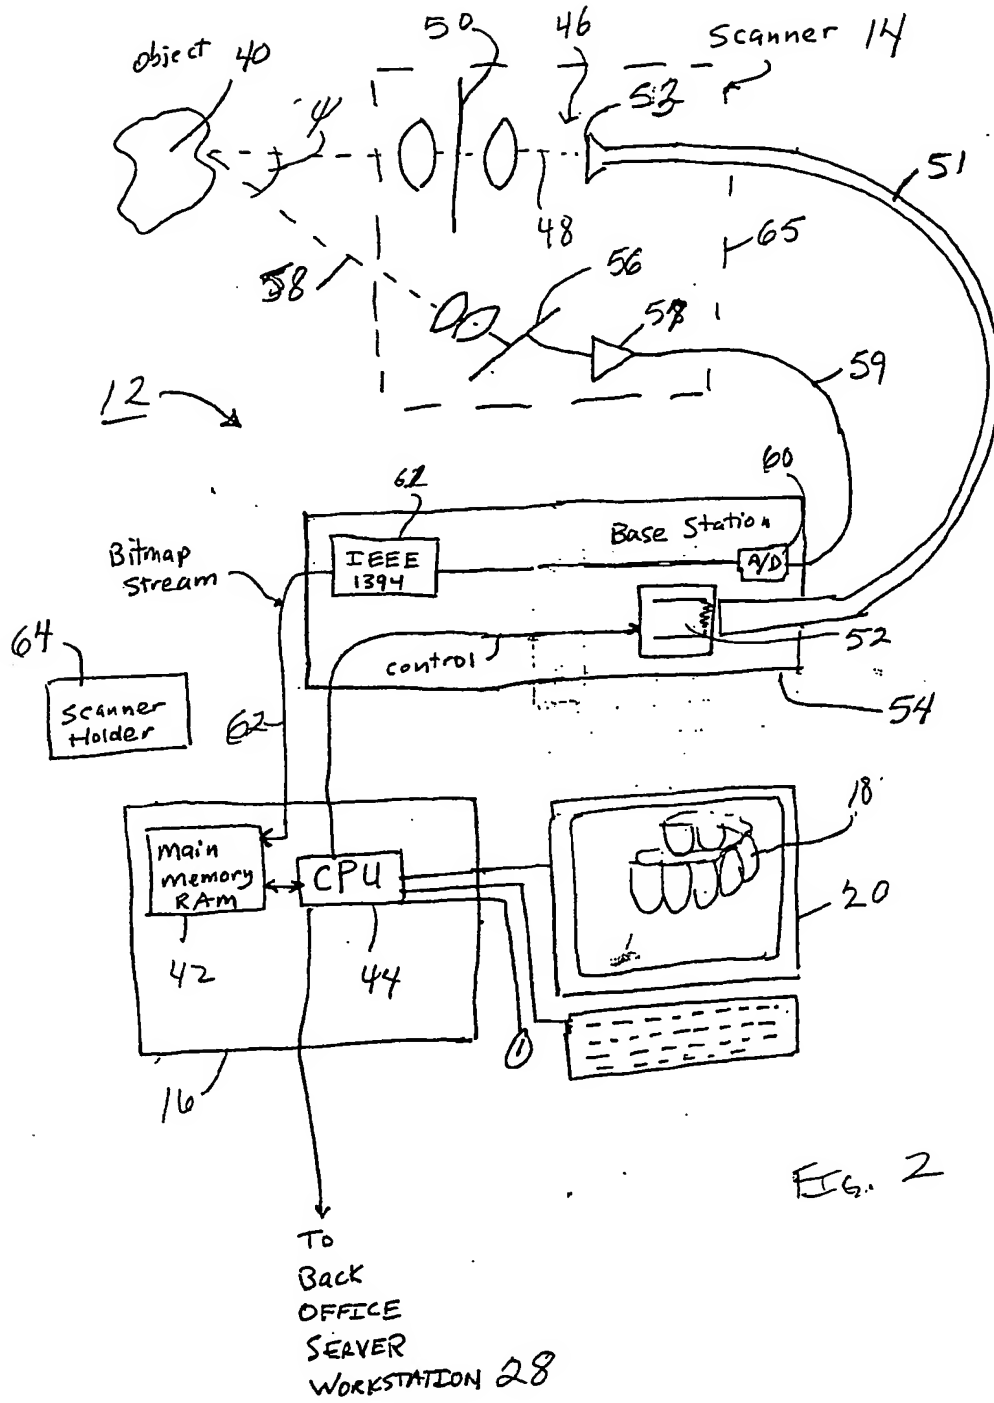 Object 40
50
46
Scanner 14
53
ψ
51
48
65
58
56
59
12
60
61
Base Station
Bitmap
Stream
IEEE
1394
A/D
64
52
control
Scanner
Holder
62
54
18
Main
Memory
RAM
CPU
20
42
44
16
FIG. 2
To
Back
OFFICE
SERVER
WORKSTATION 28